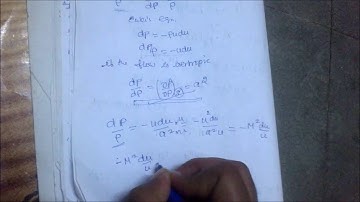 dp ρ
Euler Equ.
dp = -ρudu
dp/ρ = -udu
As the flow is isentropic
dp/dρ = (∂p/∂ρ)s = a²
dρ/ρ = -udu.u/a²xu = -u²du/a²u = -M² du/u
= M² du/u